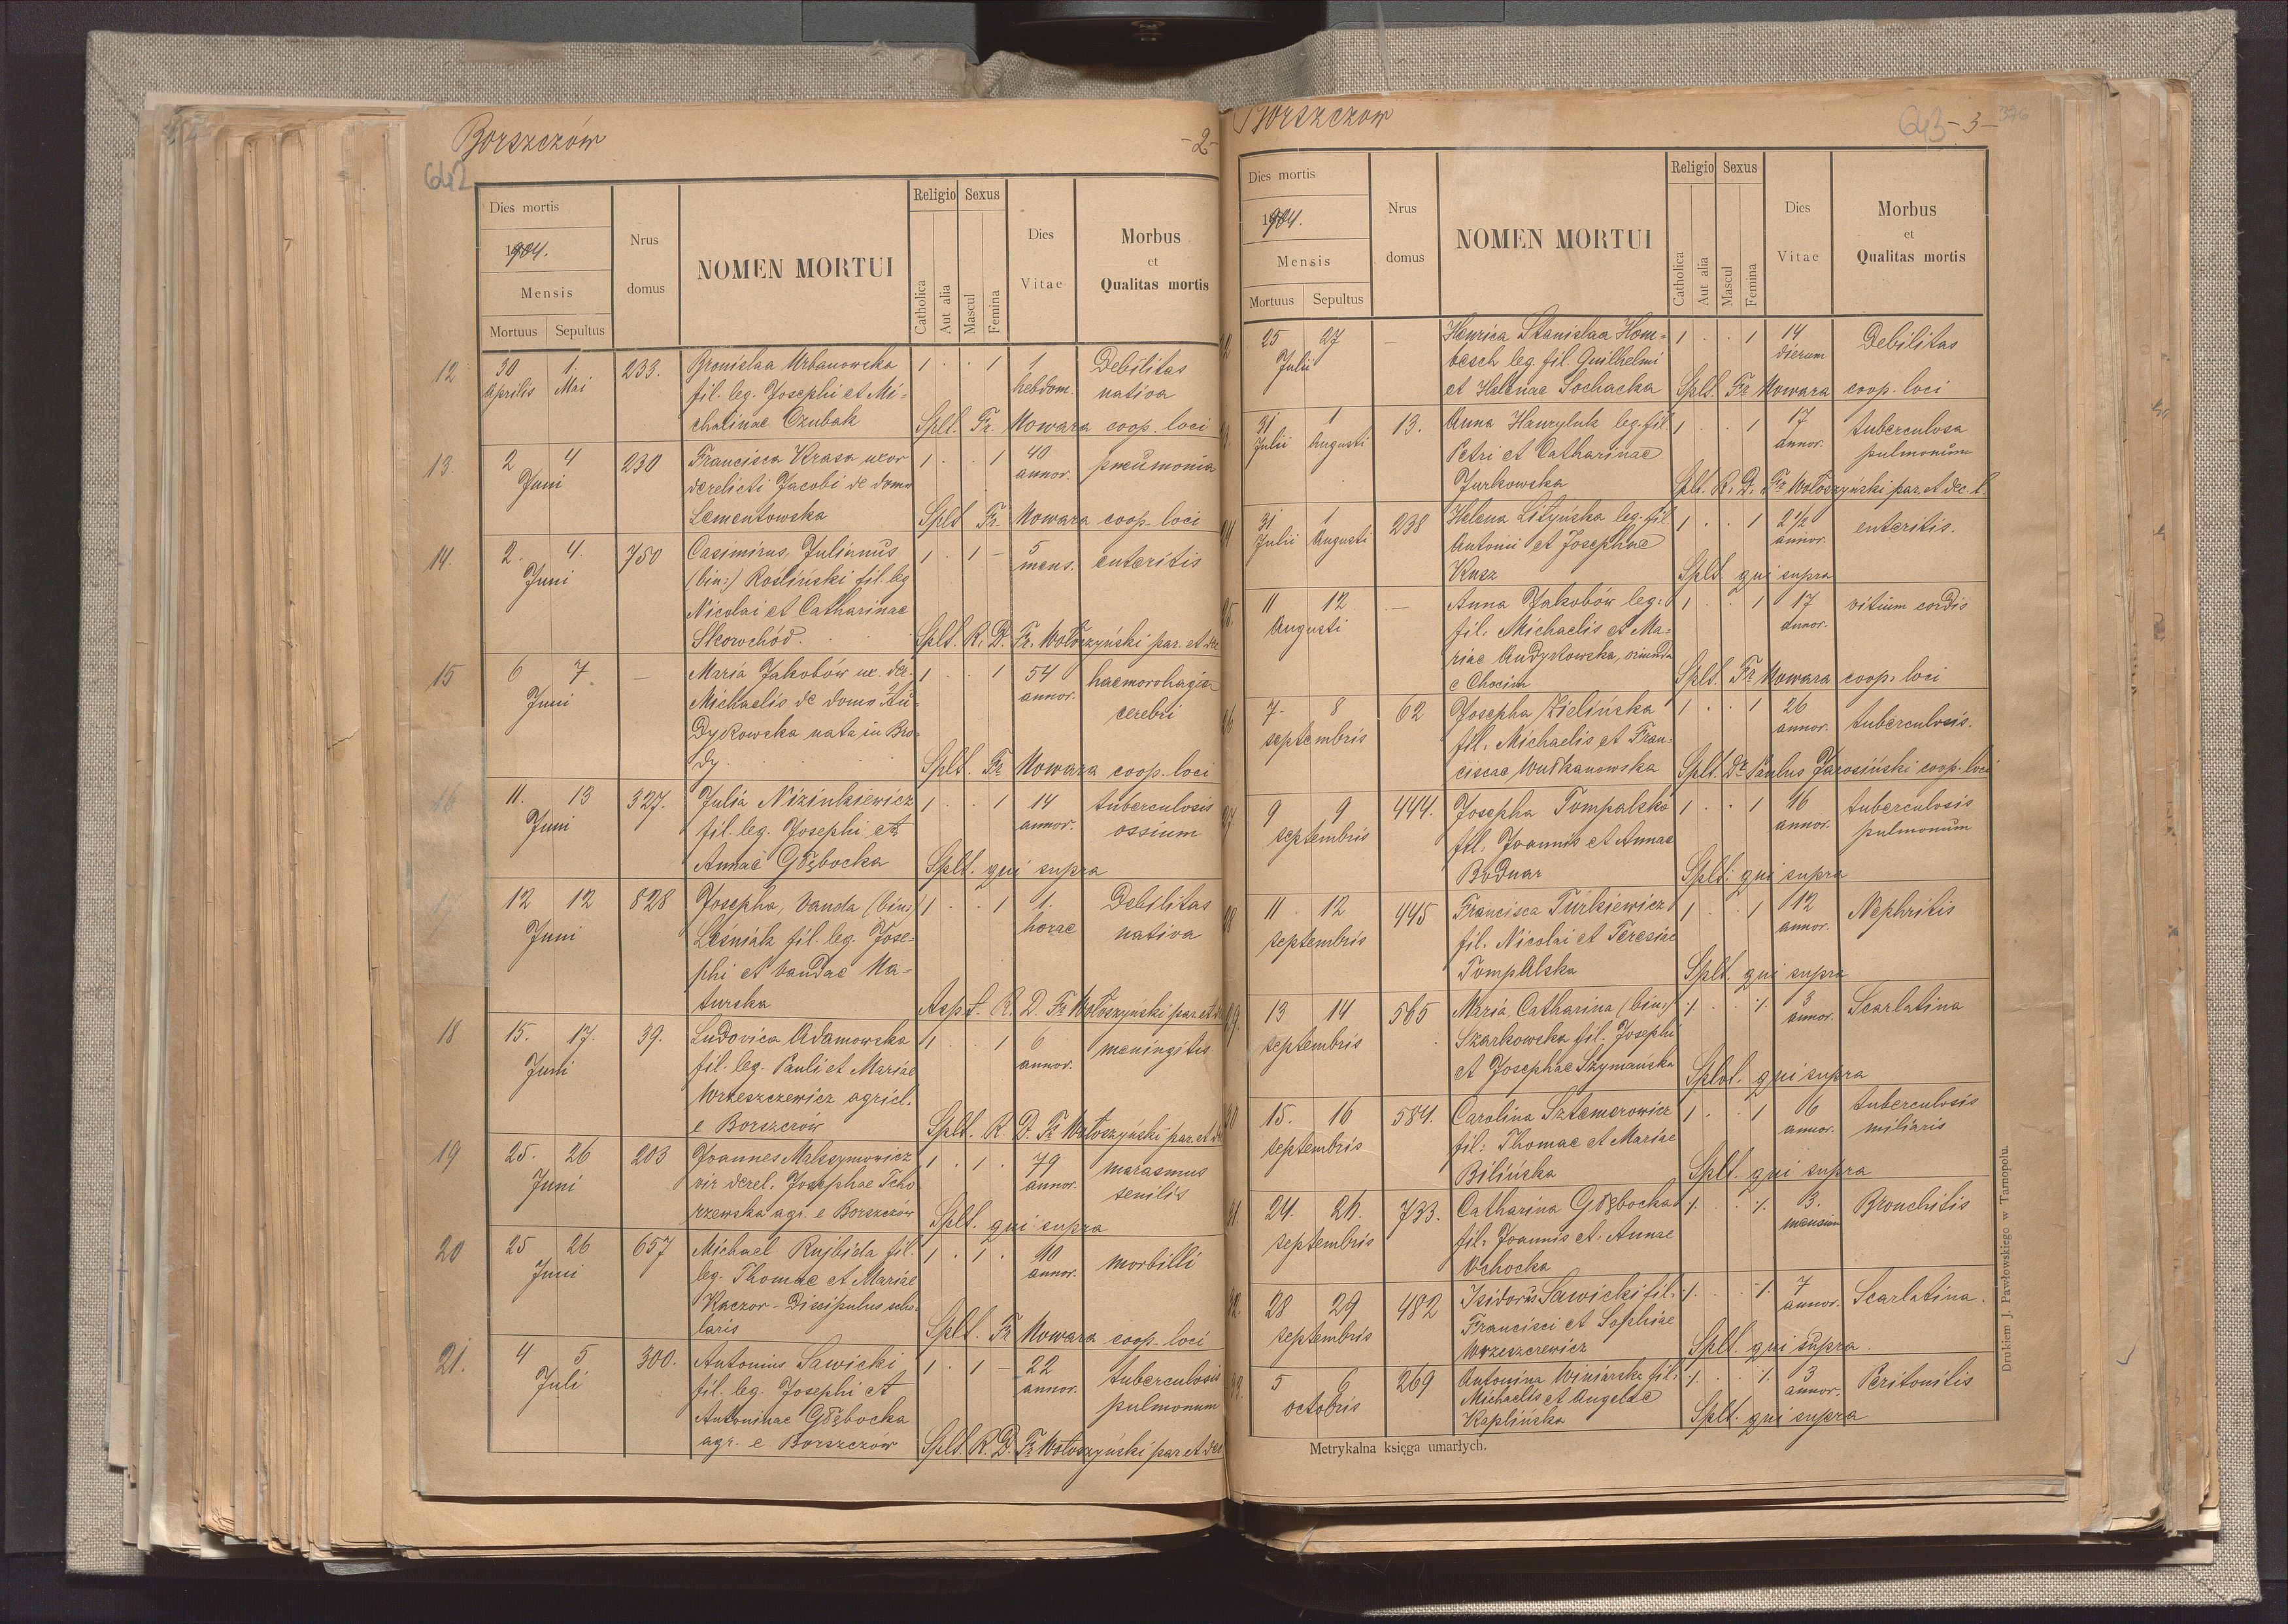 Borszczów
-2-
642
Dies mortis
1904.
Mensis
Mortuus Sepultus
Nrus domus
NOMEN MORTUI
Religio
Catholica
Aut alia
Sexus
Mascul
Femina
Dies Vitae
Morbus
et
Qualitas mortis
12 30 1. 233. Bronislaa Urbanowska 1 . . 1 1 Debilitas
Aprilis Mai fil. leg. Josephi et Mi- hebdom. nativa
chalinae Czubak Splt. Fr. Nowara coop. loci
13. 2 4 230 Francisca Krasa uxor 1 . . 1 40 pneumonia
Juni derelicti Jacobi de domo annor.
Lementowska Splt Fr. Nowara coop. loci
14. 2. 4. 750 Casimirus, Julianus 1 . 1 – 5 enteritis
Juni (bin:) Rośliński fil. leg mens.
Nicolai et Catharinae
Skorochód. Splt. R. D. Fr. Wołoszyński par. et dec
15 6 7 — Maria Jakobów ux. der. 1 . . 1 54 haemorohagia
Juni Michaelis de domo Au- annor. cerebri
dykowska nata in Bro-
dy. Splt. Fr Nowara coop. loci
16 11. 13 327. Julia Niziukiewicz 1 . . 1 14 tuberculosis
Juni fil. leg. Josephi et annor. ossium
Annae Głębocka Splt. qui supra
17 12 12 828 Josepha, Vanda (bin:) 1 . . 1 1. Debilitas
Juni Leśniak fil. leg. Jose- horae nativa
phi et Vandae Ma-
turska Aspt. R. D. Fr Wołoszyński par. et
18 15. 17. 39. Ludovica Adamowska 1 . . 1 6 meningitis
Juni fil. leg. Pauli et Mariae annor.
Wrzeszczewicz agricl.
e Borszczów Splt. R. D. Fr Wołoszyński par. et
19 25. 26 203 Joannes Maksymowicz 1 . 1 . 79 marasmus
Juni vir derel. Josephae Tcho annor. senilis
rzewska agr. e Borszczów Splt. qui supra
20 25 26 657 Michael Rujbida fil. 1 . 1 . 10 morbilli
Juni leg. Thomae et Mariae annor.
Kaczor - Discipulus scho-
laris Splt. Fr Nowara coop. loci
21. 4 5 300. Antonius Sawicki 1 . 1 – 22 tuberculosis
Juli fil. leg. Josephi et annor. pulmonum
Antoninae Głębocka
agr. e Borszczów Splt. R. D. Fr Wołoszyński par et dec
Borszczow
643 -3- 376
Dies mortis
1904.
Mensis
Mortuus Sepultus
Nrus domus
NOMEN MORTUI
Religio
Catholica
Aut alia
Sexus
Mascul
Femina
Dies Vitae
Morbus
et
Qualitas mortis
25 27 — Henrica Stanislaa Hom- 1 . . 1 14 Debilitas
Julii besch leg. fil. Guilhelmi dierum
et Helenae Sochacka Splt. Fr Nowara coop. loci
31 1 13. Anna Hawryluk leg. fil. 1 . . 1 17 tuberculosa
Julii Augusti Petri et Catharinae annor. pulmonum
Jurkowska Splt. R. D. Fr Wołoszyński par. et dec. l.
31 1 238 Helena Lityńska leg. fil. 1 . . 1 2 1/2 enteritis.
Julii Augusti Antonii et Josephae annor.
Kusz Splt. qui supra
11 12 — Anna Jakobów leg: 1 . . 1 17 vitium cordis
Augusti fil. Michaelis et Ma- annor.
riae Audykowska, oriunda
e Chocim Splt. Fr Nowara coop. loci
7. 8 62 Josepha Zielińska 1 . . 1 26 tuberculosis.
septembris fil. Michaelis et Fran- annor.
ciscae Wudkanowska Splt. Dr. Paulus Jarosiński coop. loci
9 9 444. Josepha Tompalska 1 . . 1 16 tuberculosis
septembris fil. Joannis et Annae annor. pulmonum
Bodnar Splt. qui supra
11 12 445 Francisca Turkiewicz 1 . . 1 12 Nephritis
septembris fil. Nicolai et Teresiae annor.
Tompalska Splt. qui supra
13 14 565 Maria, Catharina (bin:) 1. . . 1. 3 Scarlatina
septembris Szarkowska fil. Josephi annor.
et Josephae Szymańska Splt. qui supra
15. 16 584. Carolina Sztemerowicz 1 . . 1 6 tuberculosis
septembris fil: Thomae et Mariae annor. miliaris
Bilińska Splt. qui supra
31. 24. 26. 733. Catharina Głębocka 1. . . 1. 3. Bronchitis
septembris fil. Joannis et Annae mensium
Ochocka
28 29 482 Isidorus Sawicki fil. 1. . . 1. 7 Scarlatina.
septembris Francisci et Sophiae annor.
Wrzeszczewicz Splt. qui supra.
5 6 269 Antonina Winiarska fil. 1. . . 1. 3 Peritonitis
octobris Michaelis et Angelae annor.
Kaplińska Splt. qui supra
Metrykalna księga umarłych.
Drukiem J. Pawłowskiego w Tarnopolu.